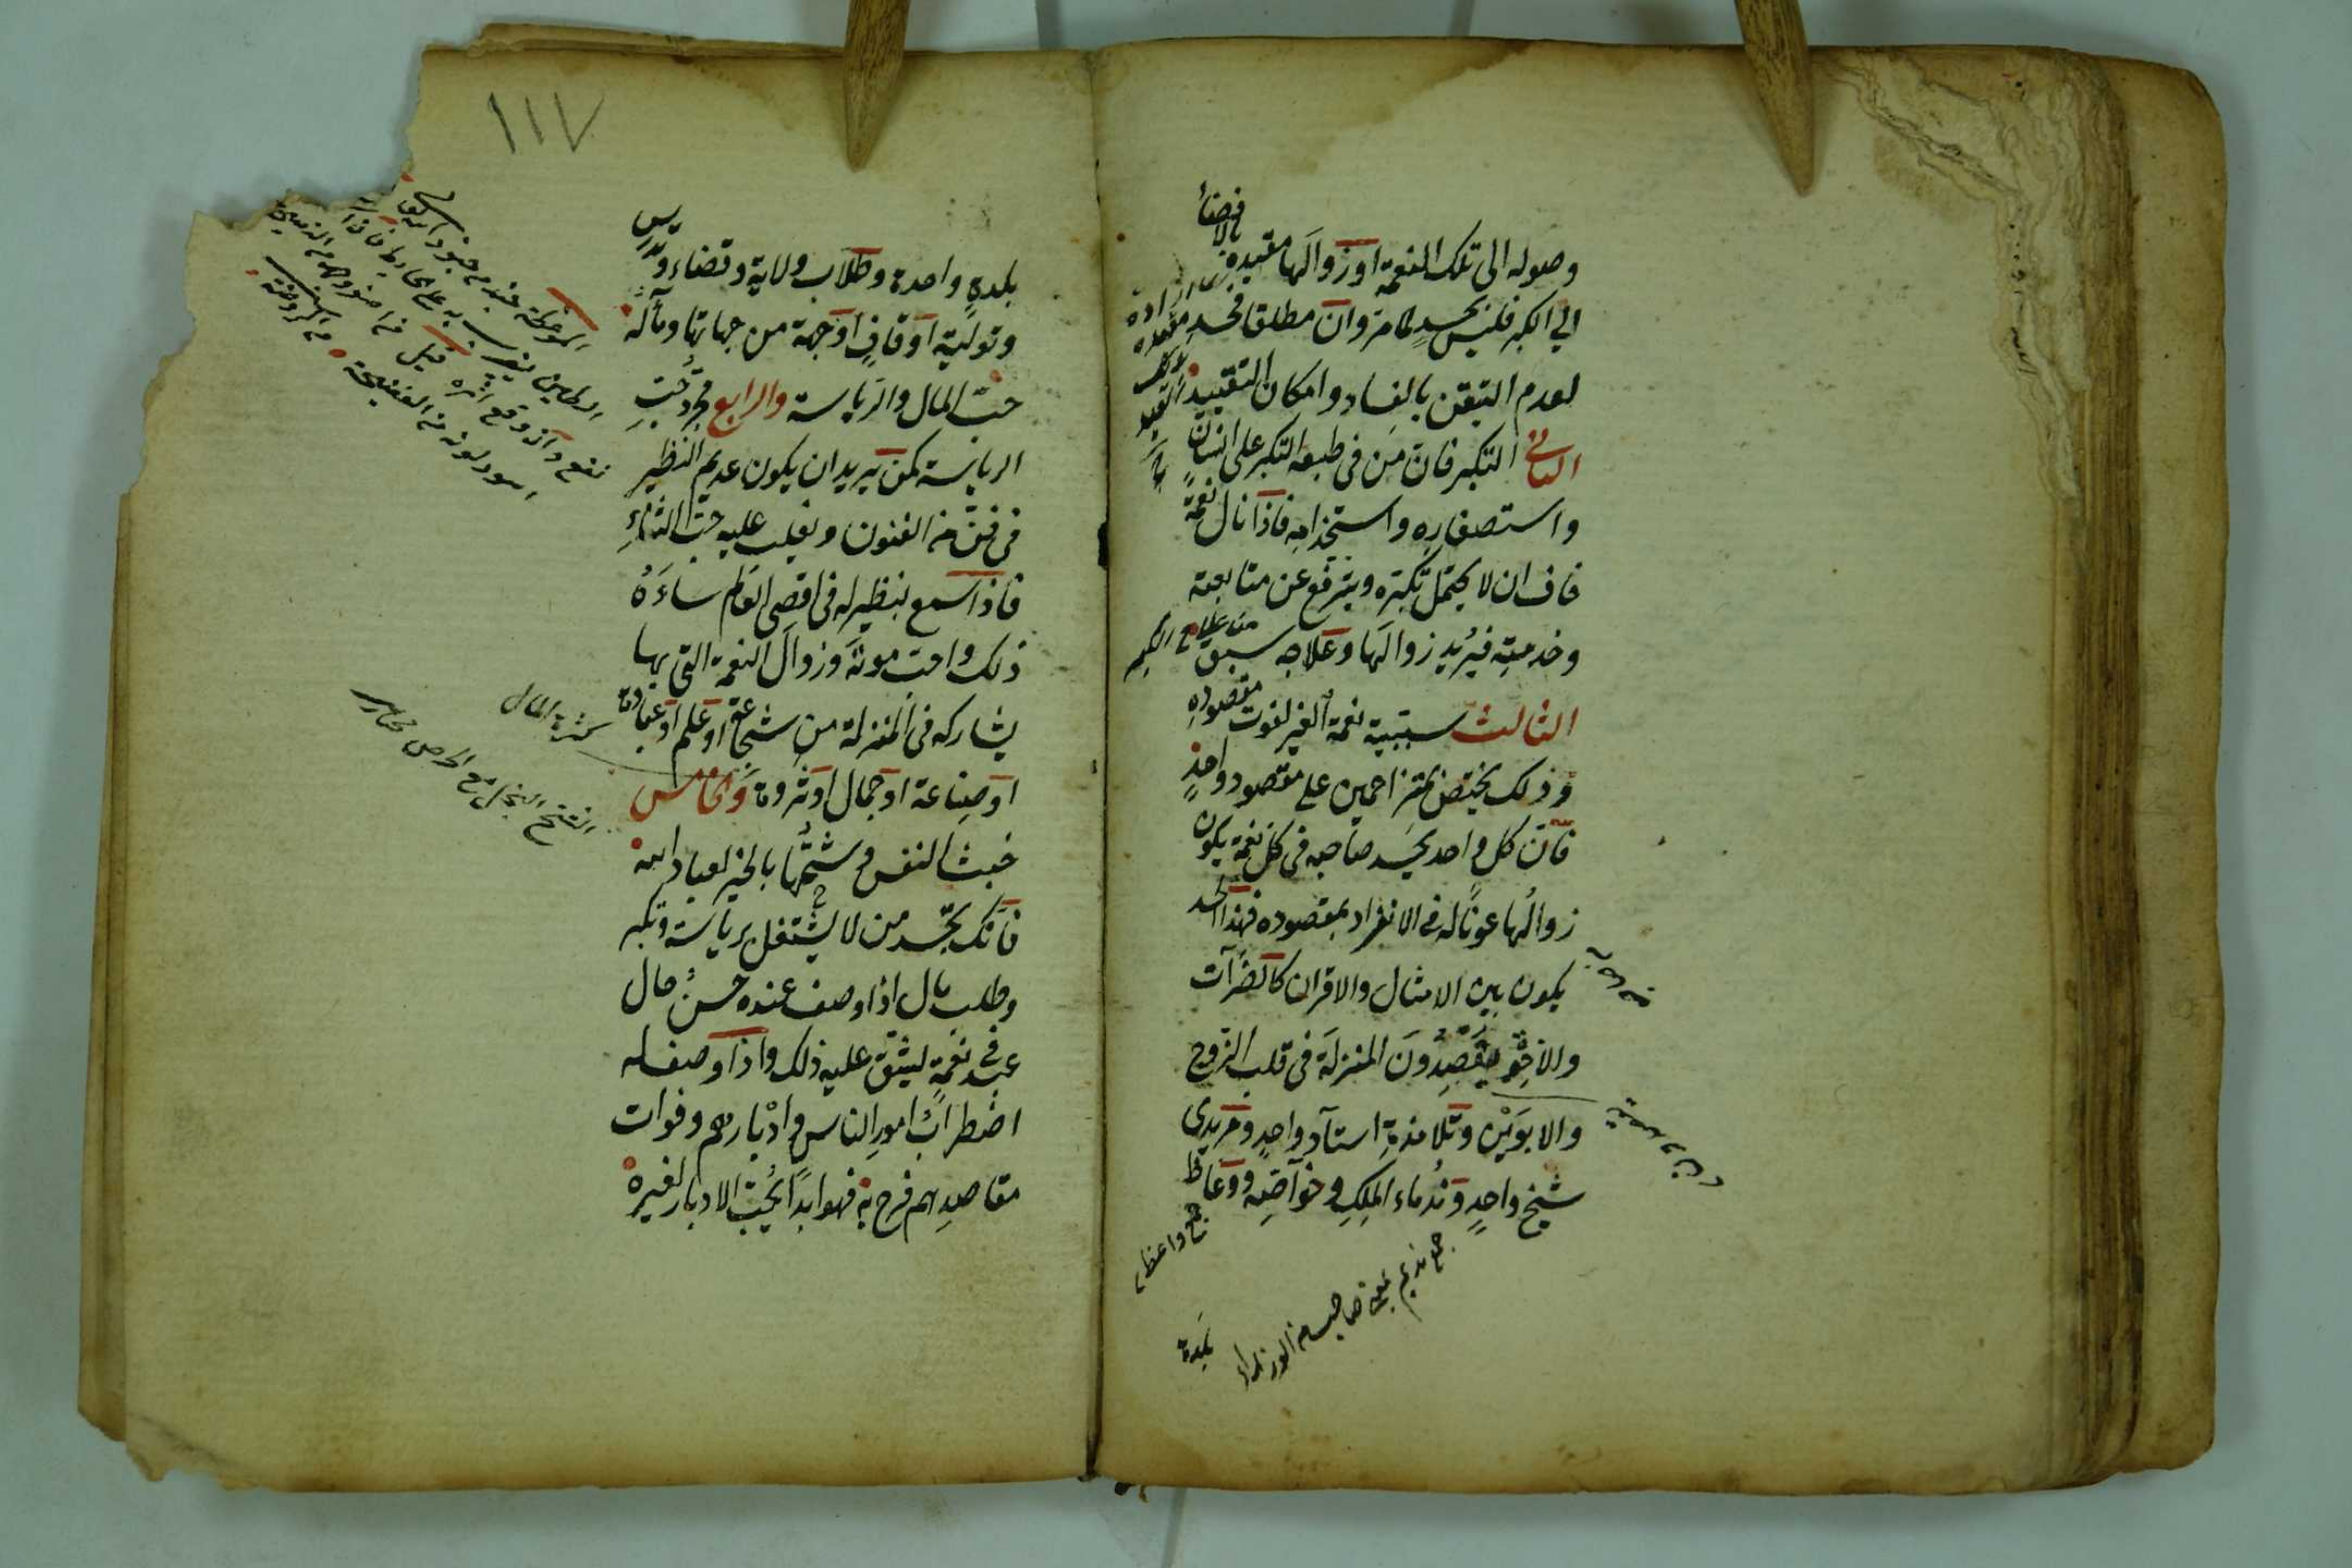 وصوله الى تلك النعمة او زوالها مقيدة بالافضاء
الى الكبر فليس بحسد لما مر وان مطلقا فحسد
لعدم التيقن بالفساد وامكان التقييد
الثانى التكبر فان من فى طبعه التكبر على انسان
واستصغاره واستخدامه فاذا نال نعمة
خاف ان لا يحتمل تكبره ويترفع عن متابعته
وخدمته فيريد زوالها وعلاجه سبق
من علاج الكبر
الثالث سببية نعمة الغير لفوت مقصوده
وذلك يختص بمتزاحمين على مقصود واحد
فان كل واحد يحسد صاحبه فى كل نعمة يكون
زوالها عونا له فى الانفراد بمقصوده فهذا الحسد
يكون بين الامثال والاقران كالضرات
والاخوة يقصدون المنزلة فى قلب الزوج
والابوين وتلامذة استاد واحد ومريدى
شيخ واحد وندماء الملك وخواصه ووعاظ
جمع واعظ
جمع نديم بمعنى صاحب من الوزراء
بلدة
١١٧
بلدة واحدة وطلاب ولاية وقضاء وتدريس
وتولية اوقاف او جهة من جهاتها ومآله
حب المال والرياسة والرابع مجرد حب
الرياسة كمن يريد ان يكون عديم النظير
فى فن من الفنون ويغلب عليه حب الثناء
فاذا سمع بنظير له فى اقصى العالم ساءه
ذلك واحب موته وزوال النعمة التى بها
يشاركه فى المنزلة من شجاعة او علم او عبادة
او صناعة او جمال او ثروة والخامس
كثرة المال
خبث النفس وشحها بالخير لعباد الله
الشح البخل مع الحرص
فانك تجد من لا يشتغل برياسة وتكبر
وطلب مال اذا وصف عنده حسن حال
عبد فى نعمة ليشق عليه ذلك واذا وصف له
اضطراب امور الناس وادبارهم وفوات
مقاصدهم فرح به فهو ابدا يحب الادبار لغيره